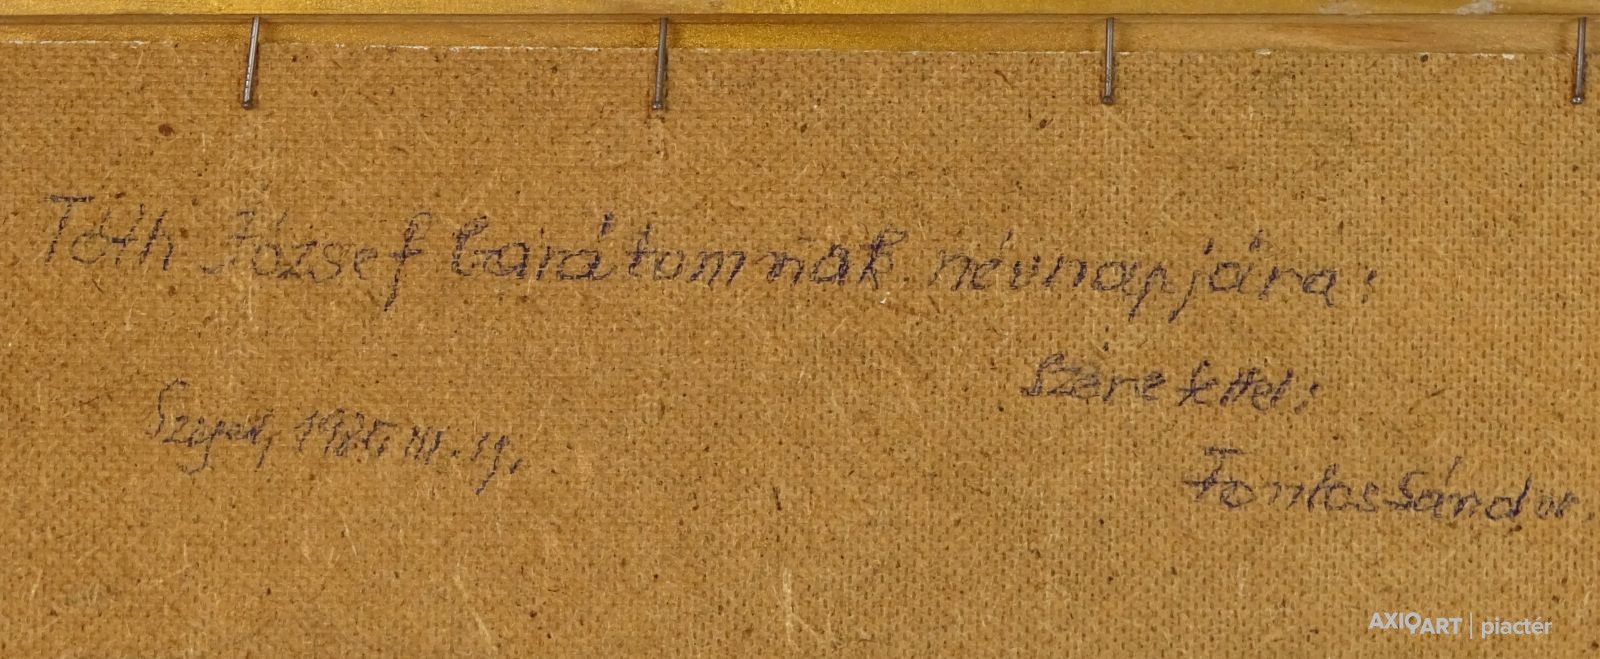 Tóth József barátomnak névnapjára:
Szeretettel:
Szeged, 1985. III. 19.
Fontos Sándor.
AXIOART | piactér